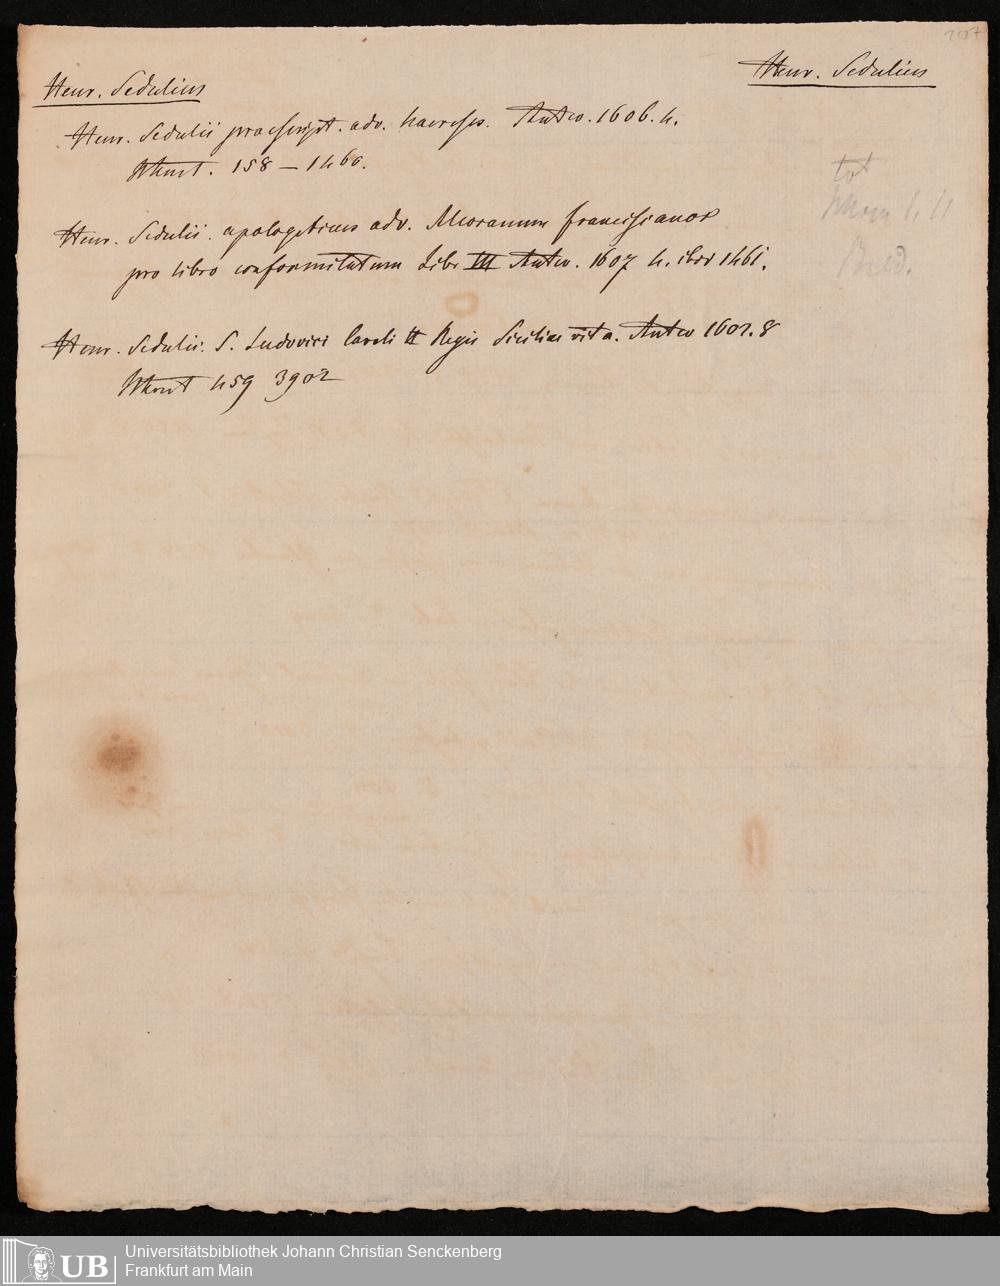 207
Henr. Sedulius
Henr. Sedulius
Henr. Sedulii praescript. adv. haereses. Antw. 1606. 4.
158 – 1460.
tot
Henr. Sedulii. apologeticus adv. Alcoranum franciscanor
pro libro conformitatum Libr III Antw. 1607 4. ibid 1461.
Henr. Sedulii. S. Ludovici Caroli II Regis Siciliae vita. Antw 1602. 8
459 3902
UB
Universitätsbibliothek Johann Christian Senckenberg
Frankfurt am Main